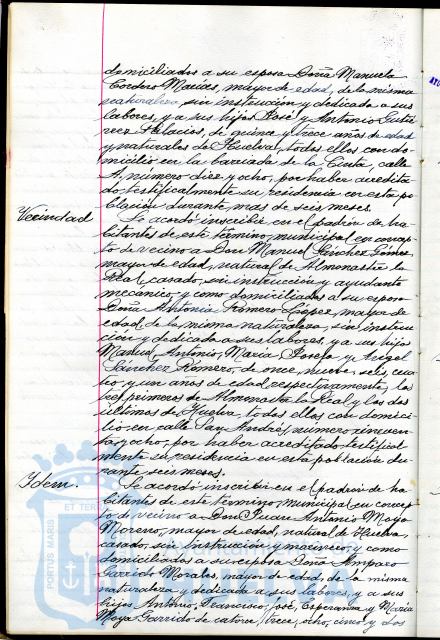 domiciliados a su esposa Doña Manuela
Cordero Macías, mayor de edad, de la misma
naturaleza, sin instrucción y dedicada a sus
labores, y a sus hijos José y Antonio Gutié
rrez Palacios, de quince y trece años de edad
y naturales de Huelva, todos ellos con do-
micilio en la barriada de la Cinta, calle
A, número diez y ocho, por haber acredita-
do testificalmente su residencia en esta po-
blación durante mas de seis meses.
Vecindad
Se acordó inscribir en el padrón de ha-
bitantes de este término municipal en concep-
to de vecino a Don Manuel Sánchez Gómez,
mayor de edad, natural de Almonaster la
Real, casado, sin instrucción y ayudante
mecánico, y como domiciliados a su esposa
Doña Antonia Romero López, mayor de
edad, de la misma naturaleza, sin instruc-
ción y dedicada a sus labores, y a sus hijos
Manuel, Antonio, María Josefa y Angel
Sánchez Romero, de once, nueve, seis, cua-
tro, y un años de edad respectivamente, los
tres primeros de Almonaster la Real y los dos
últimos de Huelva, todos ellos con domici-
lio en calle San Andrés, número cincuen-
ta y ocho, por haber acreditado testifical-
mente su residencia en esta población du-
rante seis meses.
Idem.
Se acordó inscribir en el padrón de ha-
bitantes de este término municipal en concep-
to de vecino a Don Juan Antonio Moya
Moreno, mayor de edad, natural de Huelva,
casado, sin instrucción y marinero, y como
domiciliados a su esposa Doña Amparo
Garrido Morales, mayor de edad, de la misma
naturaleza y dedicada a sus labores, y a sus
hijos Antonio, Francisco, José, Esperanza y María
Moya Garrido de catorce, trece, ocho, cinco y dos
PORTUS MARIS
ET TER